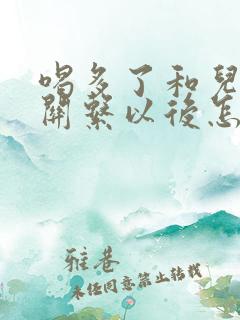 喝多了和兒
關繫以後怎
雅巷
未經同意禁止轉載